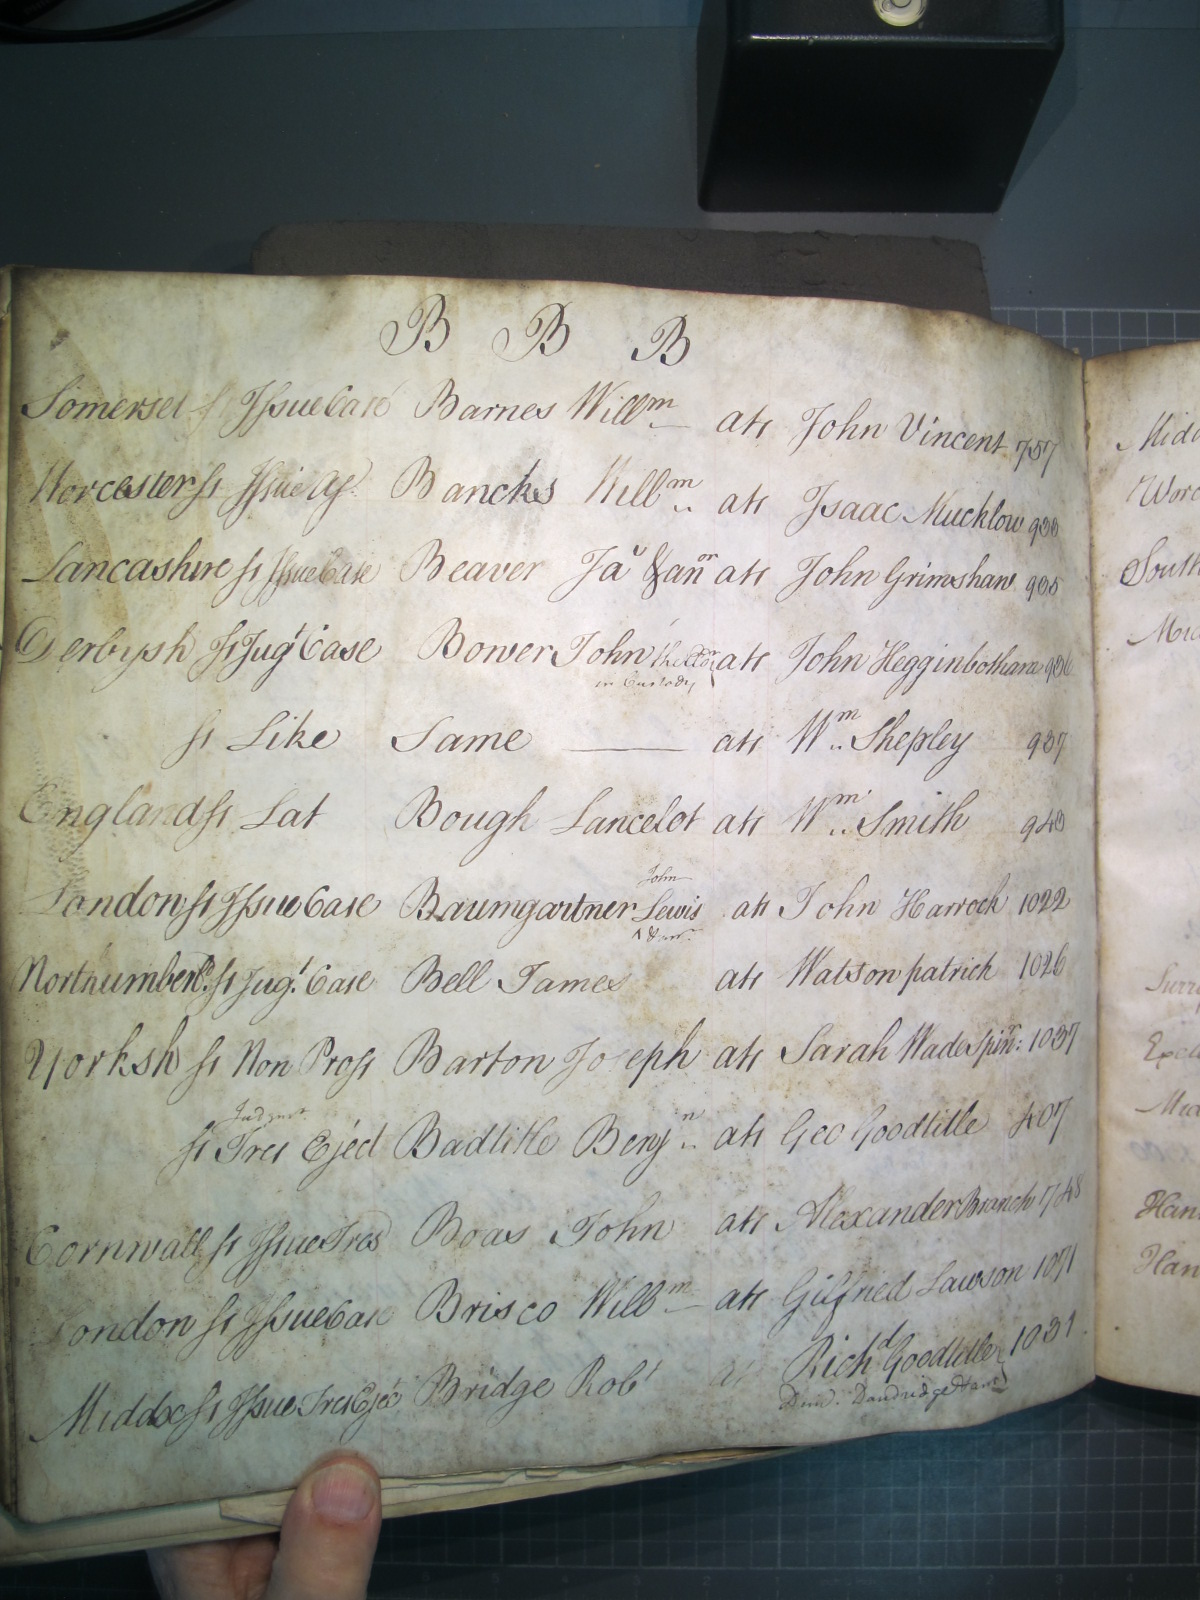 B B B
Somerset ss Issue Case Barnes Willm ats John Vincent 757
Worcester ss Issue Bancks Willm ats Isaac Mucklow
Lancashire ss Issue Case Beaver Ja & anor ats John Grimshaw
Derbysh ss Jugt Case Bower John ats John Hegginbotham
in Custody
ss Like Same ats Wm Shepley 937
England ss Lat Bough Lancelot ats Wm Smith 940
John
London ss Issue Case Baumgartner Lewis ats John Harrock 1022
Northumberld ss Jugt Case Bell James ats Watson patrick 1026
Yorksh ss Non Pross Barton Joseph ats Sarah Wade Spinr: 1037
Judgmt
ss Tres Eject Badtitle Benjn ats Geo Goodtitle 407
Cornwall ss Issue Tres Boas John ats Alexander Branch 1748
London ss Issue Case Brisco Willm ats Gilfried Lawson 1071
Middx ss Issue Tres Ejec Bridge Robt ats Richd Goodtitle 1031
Dem. Dandridge
Surr
Han
Han